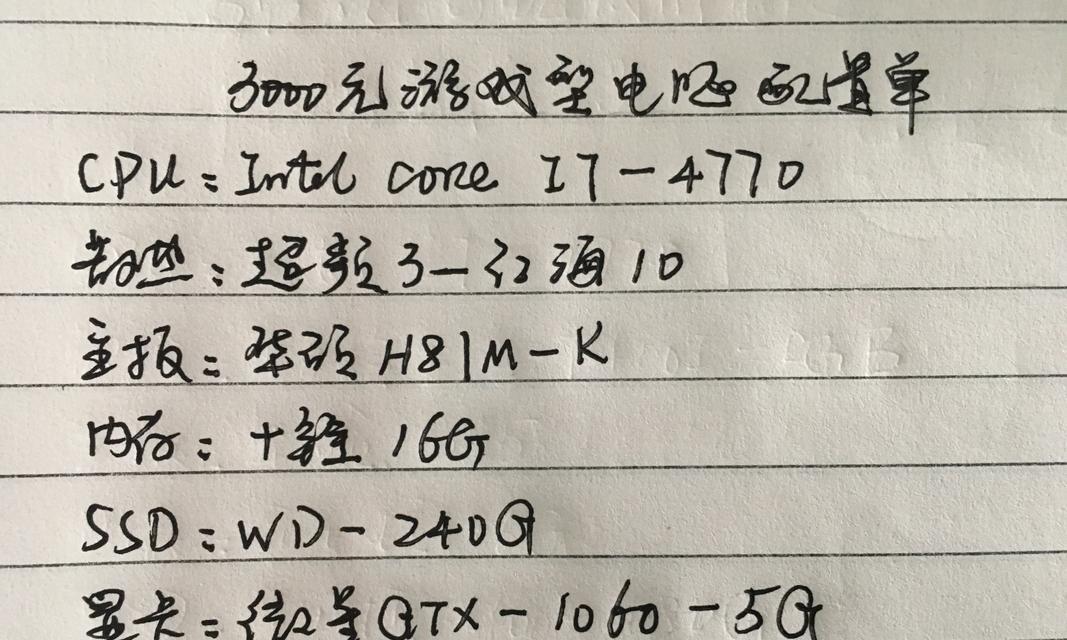 3000元游戏型电脑配置单
CPU：Intel core I7-4770
散热：超频3-红海10
主板：华硕H81M-K
内存：十铨 16G
SSD：WD-240G
显卡：微星GTX-1060-5G